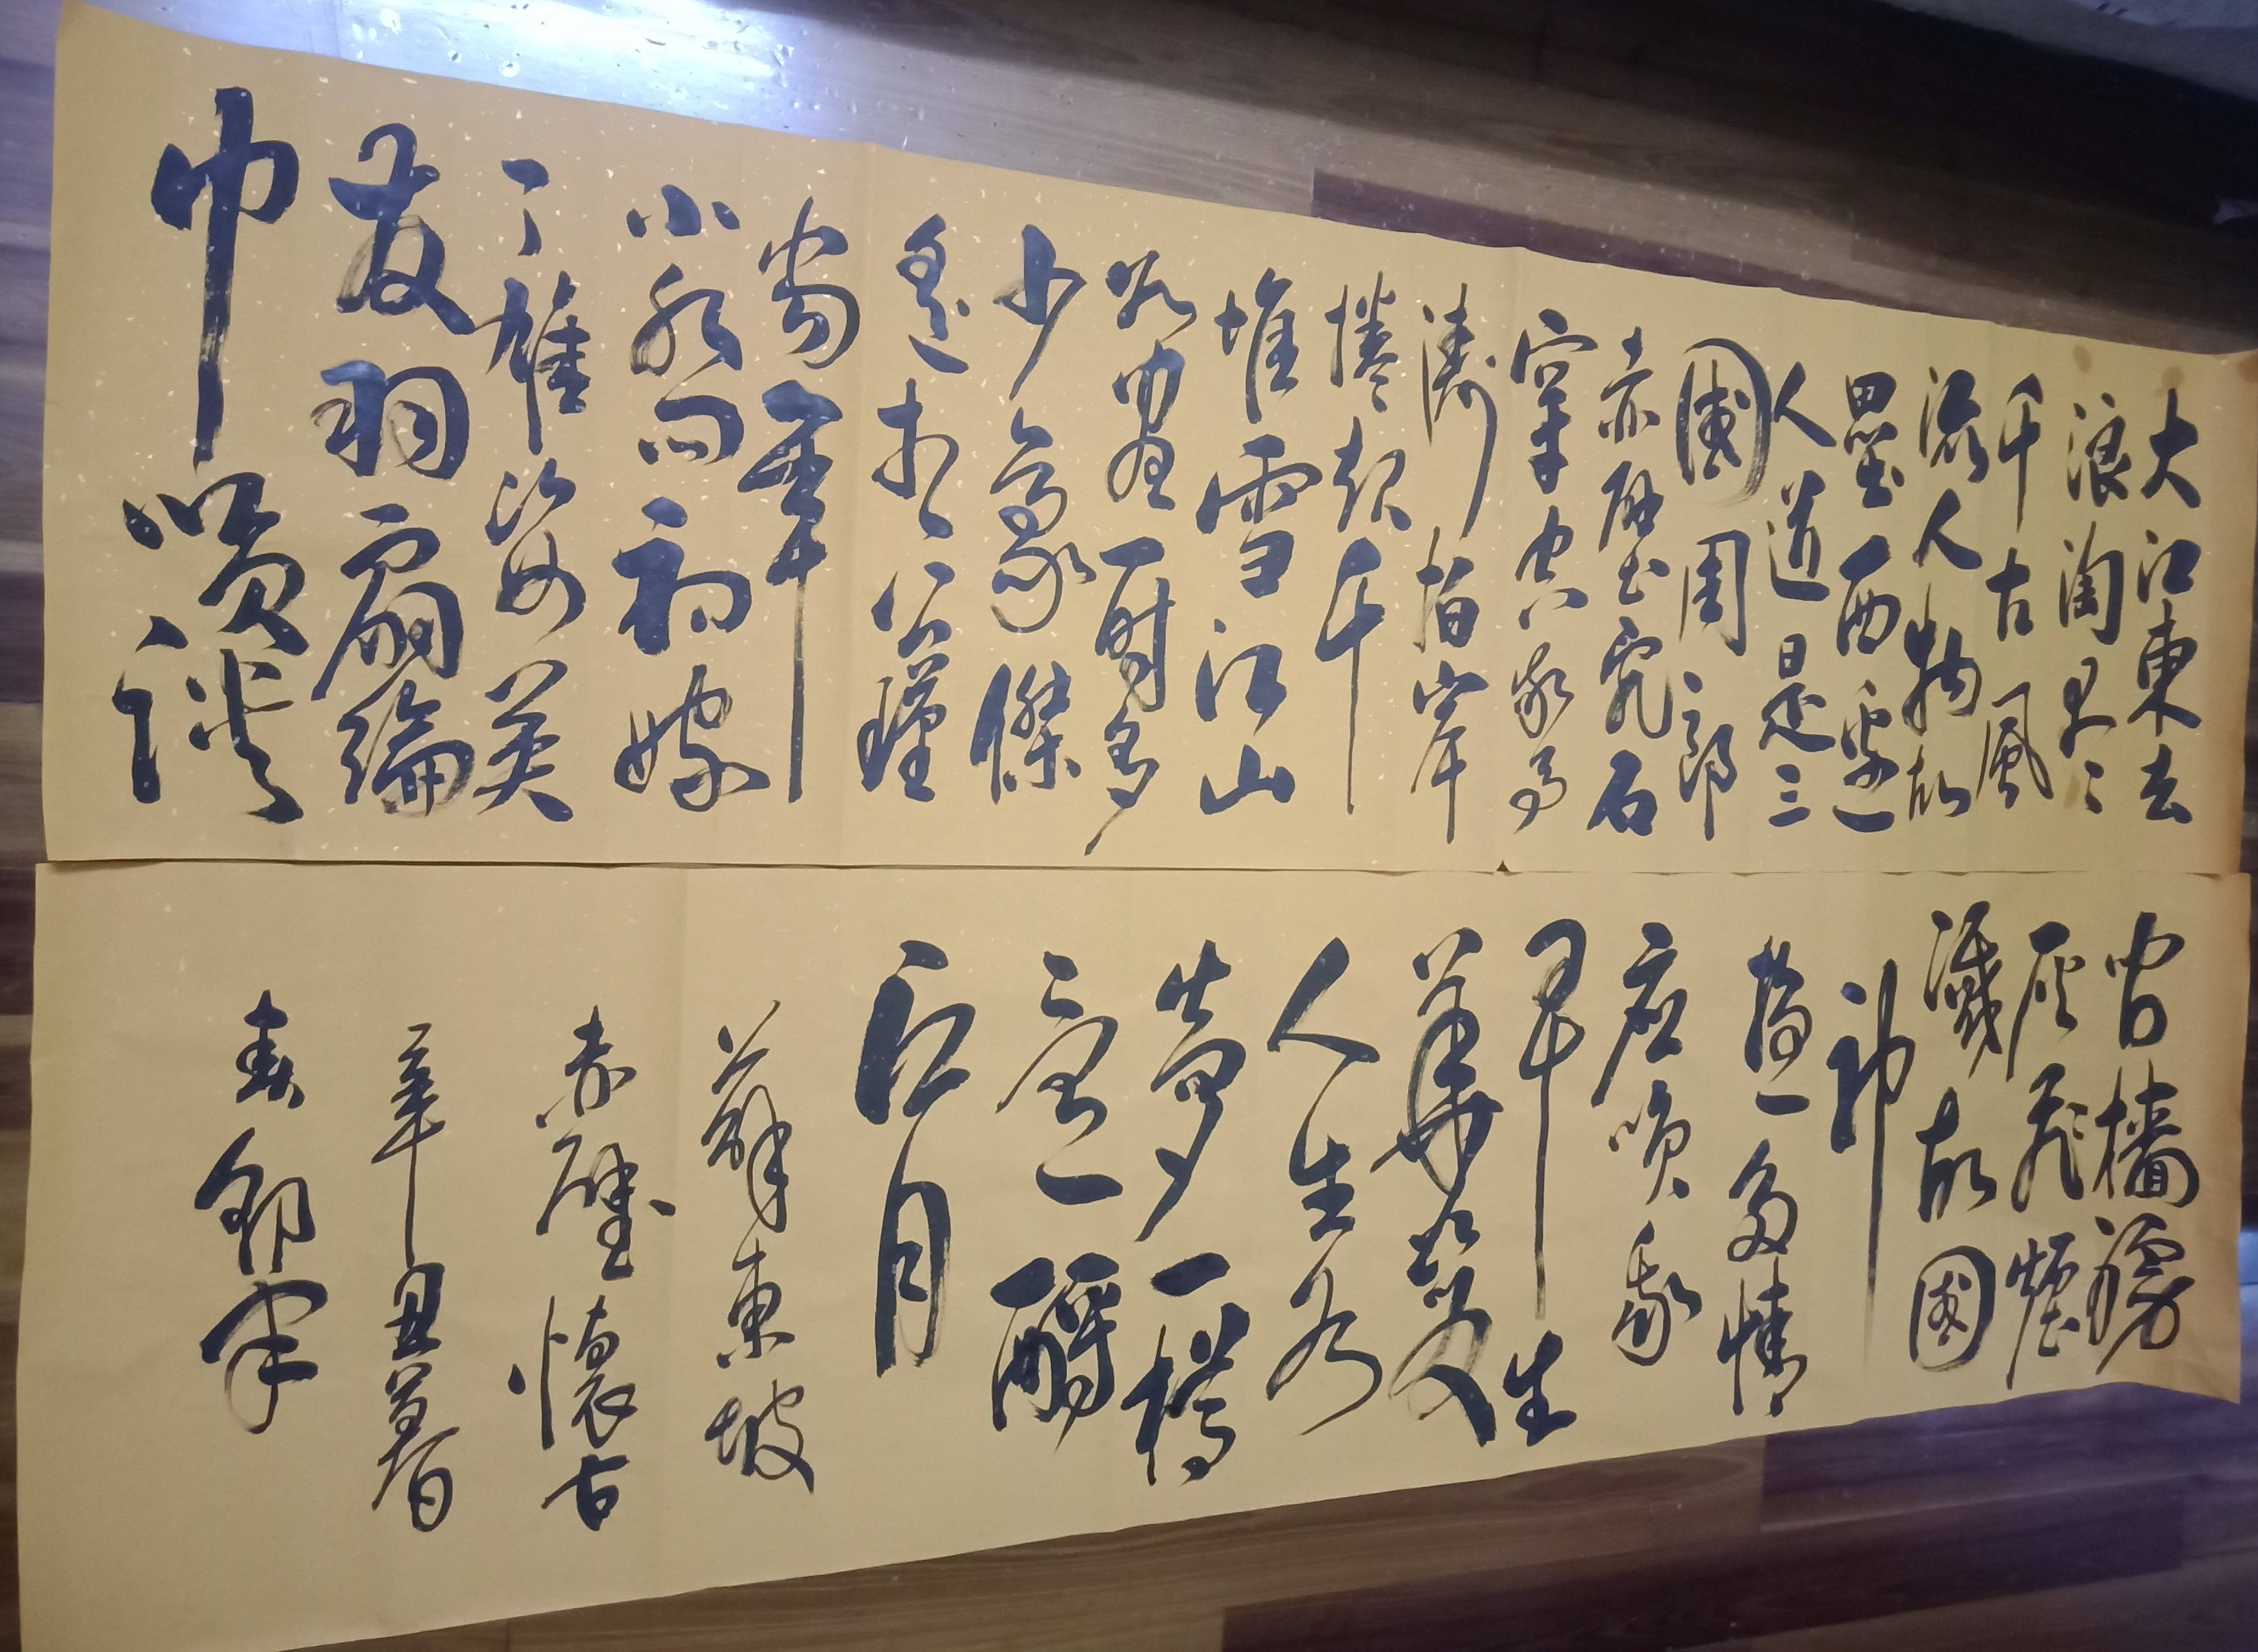 大江東去
浪淘尽
千古風
流人物故
壘西邊
人道是三
國周郎
赤壁乱石
穿空驚
濤拍岸
捲起千
堆雪江山
如畫一時多
少豪傑
遙想公瑾
當年
小喬初嫁
了雄姿英
發羽扇綸
巾咲談
間檣櫓
灰飛煙
滅故國
神
遊多情
應咲我
早生
華髮
人生如
夢一樽
還酹
江月
蘇東坡
赤壁懷古
辛丑暮
春